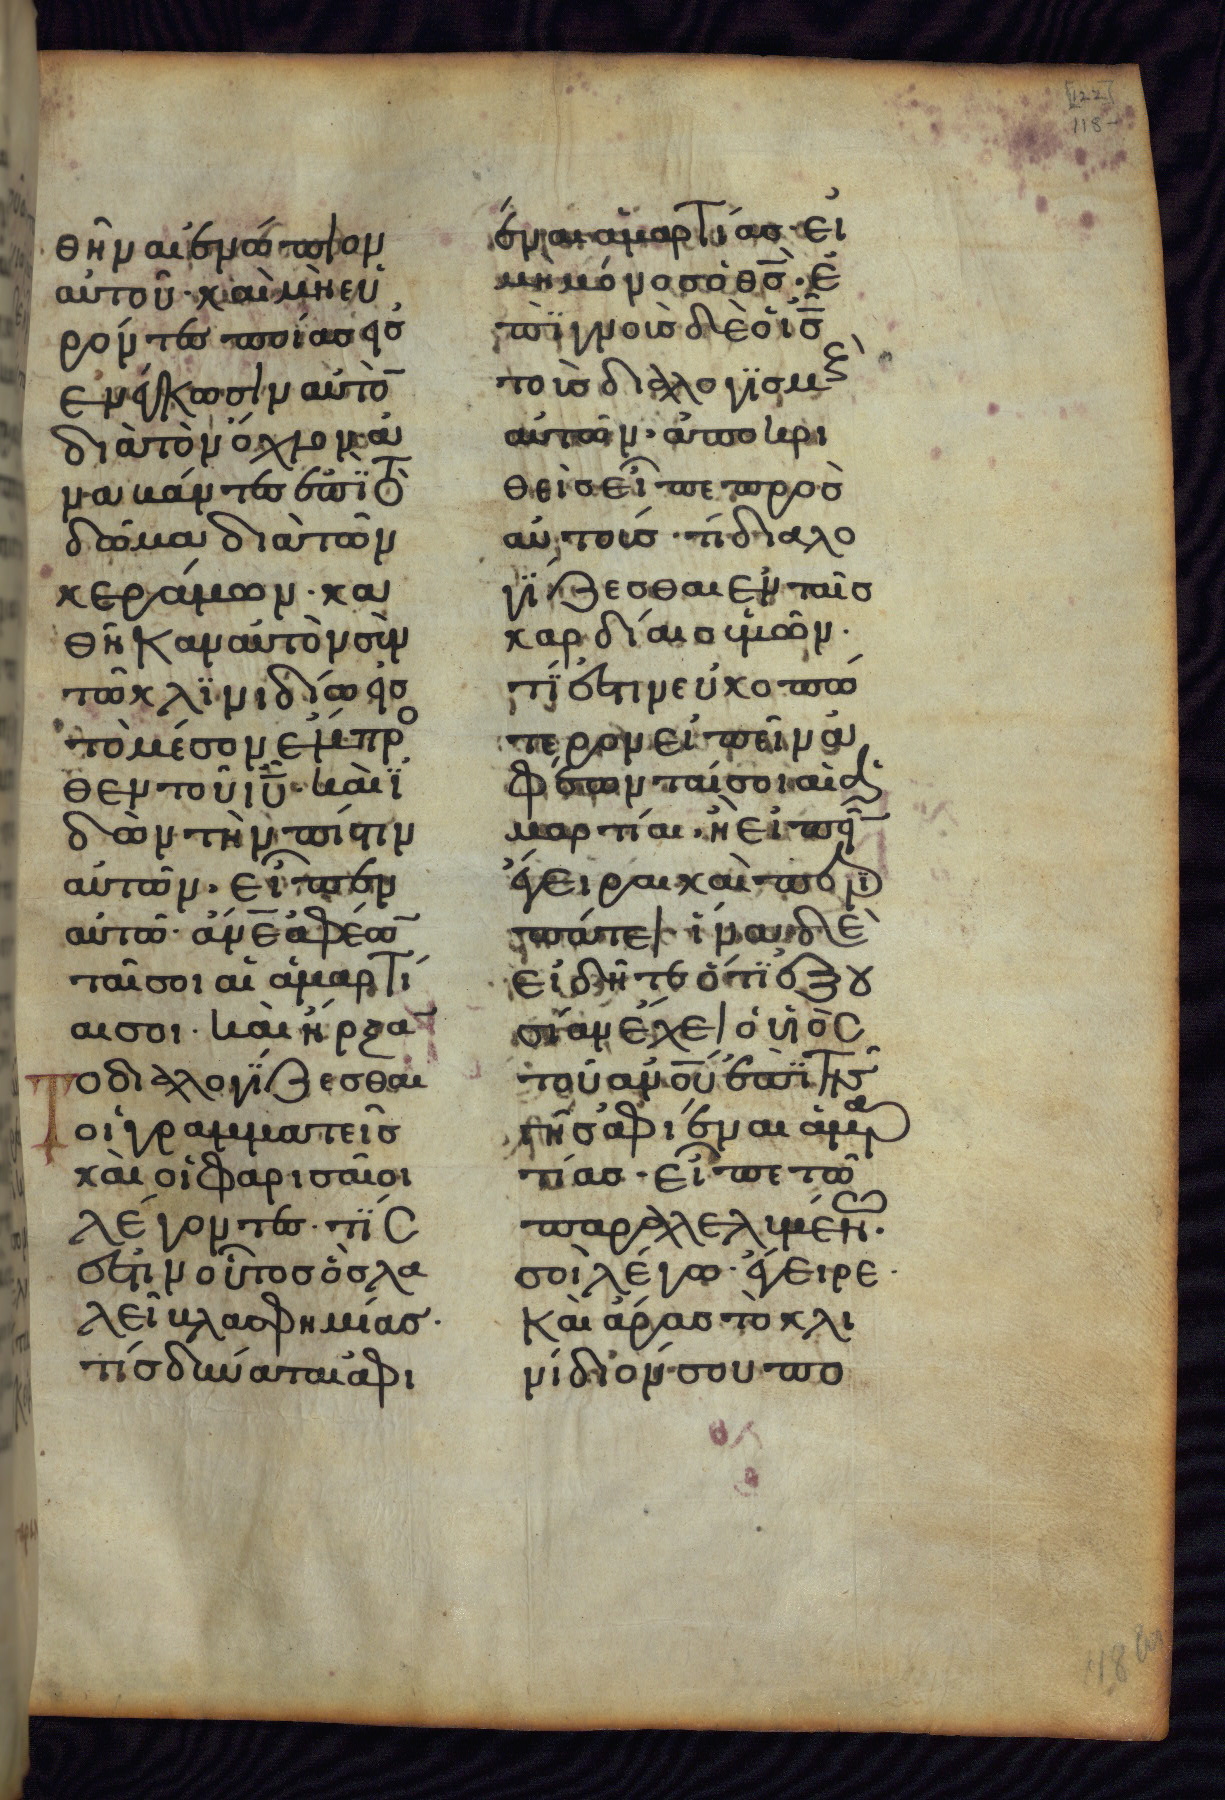 [122]
118
θῆναι ἐνώπιον
αὐτοῦ· καὶ μὴ εὑ
ρόντες ποίας εἰσ
ενέγκωσιν αὐτὸ̄
διὰ τὸν ὄχλον ἀ
ναβάντες ἐπῒ τὸ
δῶμα διὰ τῶν
κεράμων· κα
θῆκαν αὐτὸν σὺν
τῶ κλϊνιδίω εἰσ
τὸ μέσον ἔμπρο
θεν τοῦ ἰῡ· καὶ ἰ
δὼν τὴν πίστιν
αὐτῶν· εἶπεν
αὐτῶ· ἄνε̄ ἀφέω̄
ταί σοι αἱ ἁμαρτί
αι σοι· καὶ ἤρξᾱ
το διαλογΐζεσθαι
οἱ γραμματεῖς
καὶ οἱ φαρισαῖοι
λέγοντες· τῒς
ἐστιν οὗτος ὃς λα
λεῖ βλασφημίας·
τίς δύναται ἀφι
έναι ἁμαρτίας· εἰ
μὴ μόνος ὁ θς̄· ἐ
πϊγνοὺς δὲ ὁ ἰς̄
τοὺς διαλογϊσμοὺς
αὐτῶν· ἀποκρι
θεὶς εἶπε πρὸς
αὐτούς· τί διαλο
γΐζεσθαι εν ταῖς
καρδίαις ὑμῶν·
τΐ ἐστιν εὐκοπώ
τερον εἰπεῖν ἀ
φέωνταί σοι αἱ ἁ
μαρτίαι· ἢ εἰπεῖ̄
ἔγειραι καὶ περι
πάτει ἵνα δὲ
εἰδῆτε ὅτϊ ἐξου
σίαν ἔχει ὁ υἱὸς
τοῦ ἀνο̄υ ἐπῒ τῆς
γῆς ἀφιέναι ἁμαρ
τίας· εἶπε τῶ
παραλελυμένω·
σοὶ λέγω· ἔγειρε·
καὶ ἄρας τὸ κλι
νίδιόν σου πο